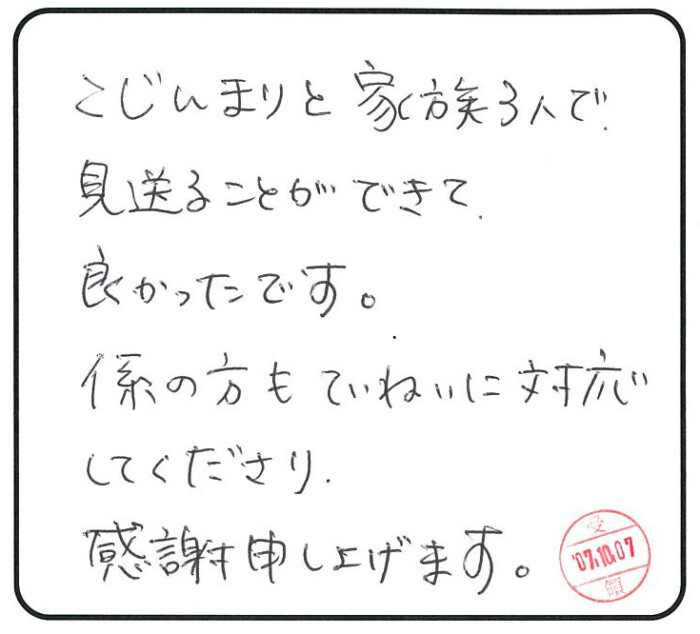 こじんまりと家族3人で
見送ることができて
良かったです。
係の方もていねいに対応
してくださり、
感謝申し上げます。
受
'07.10.07
領